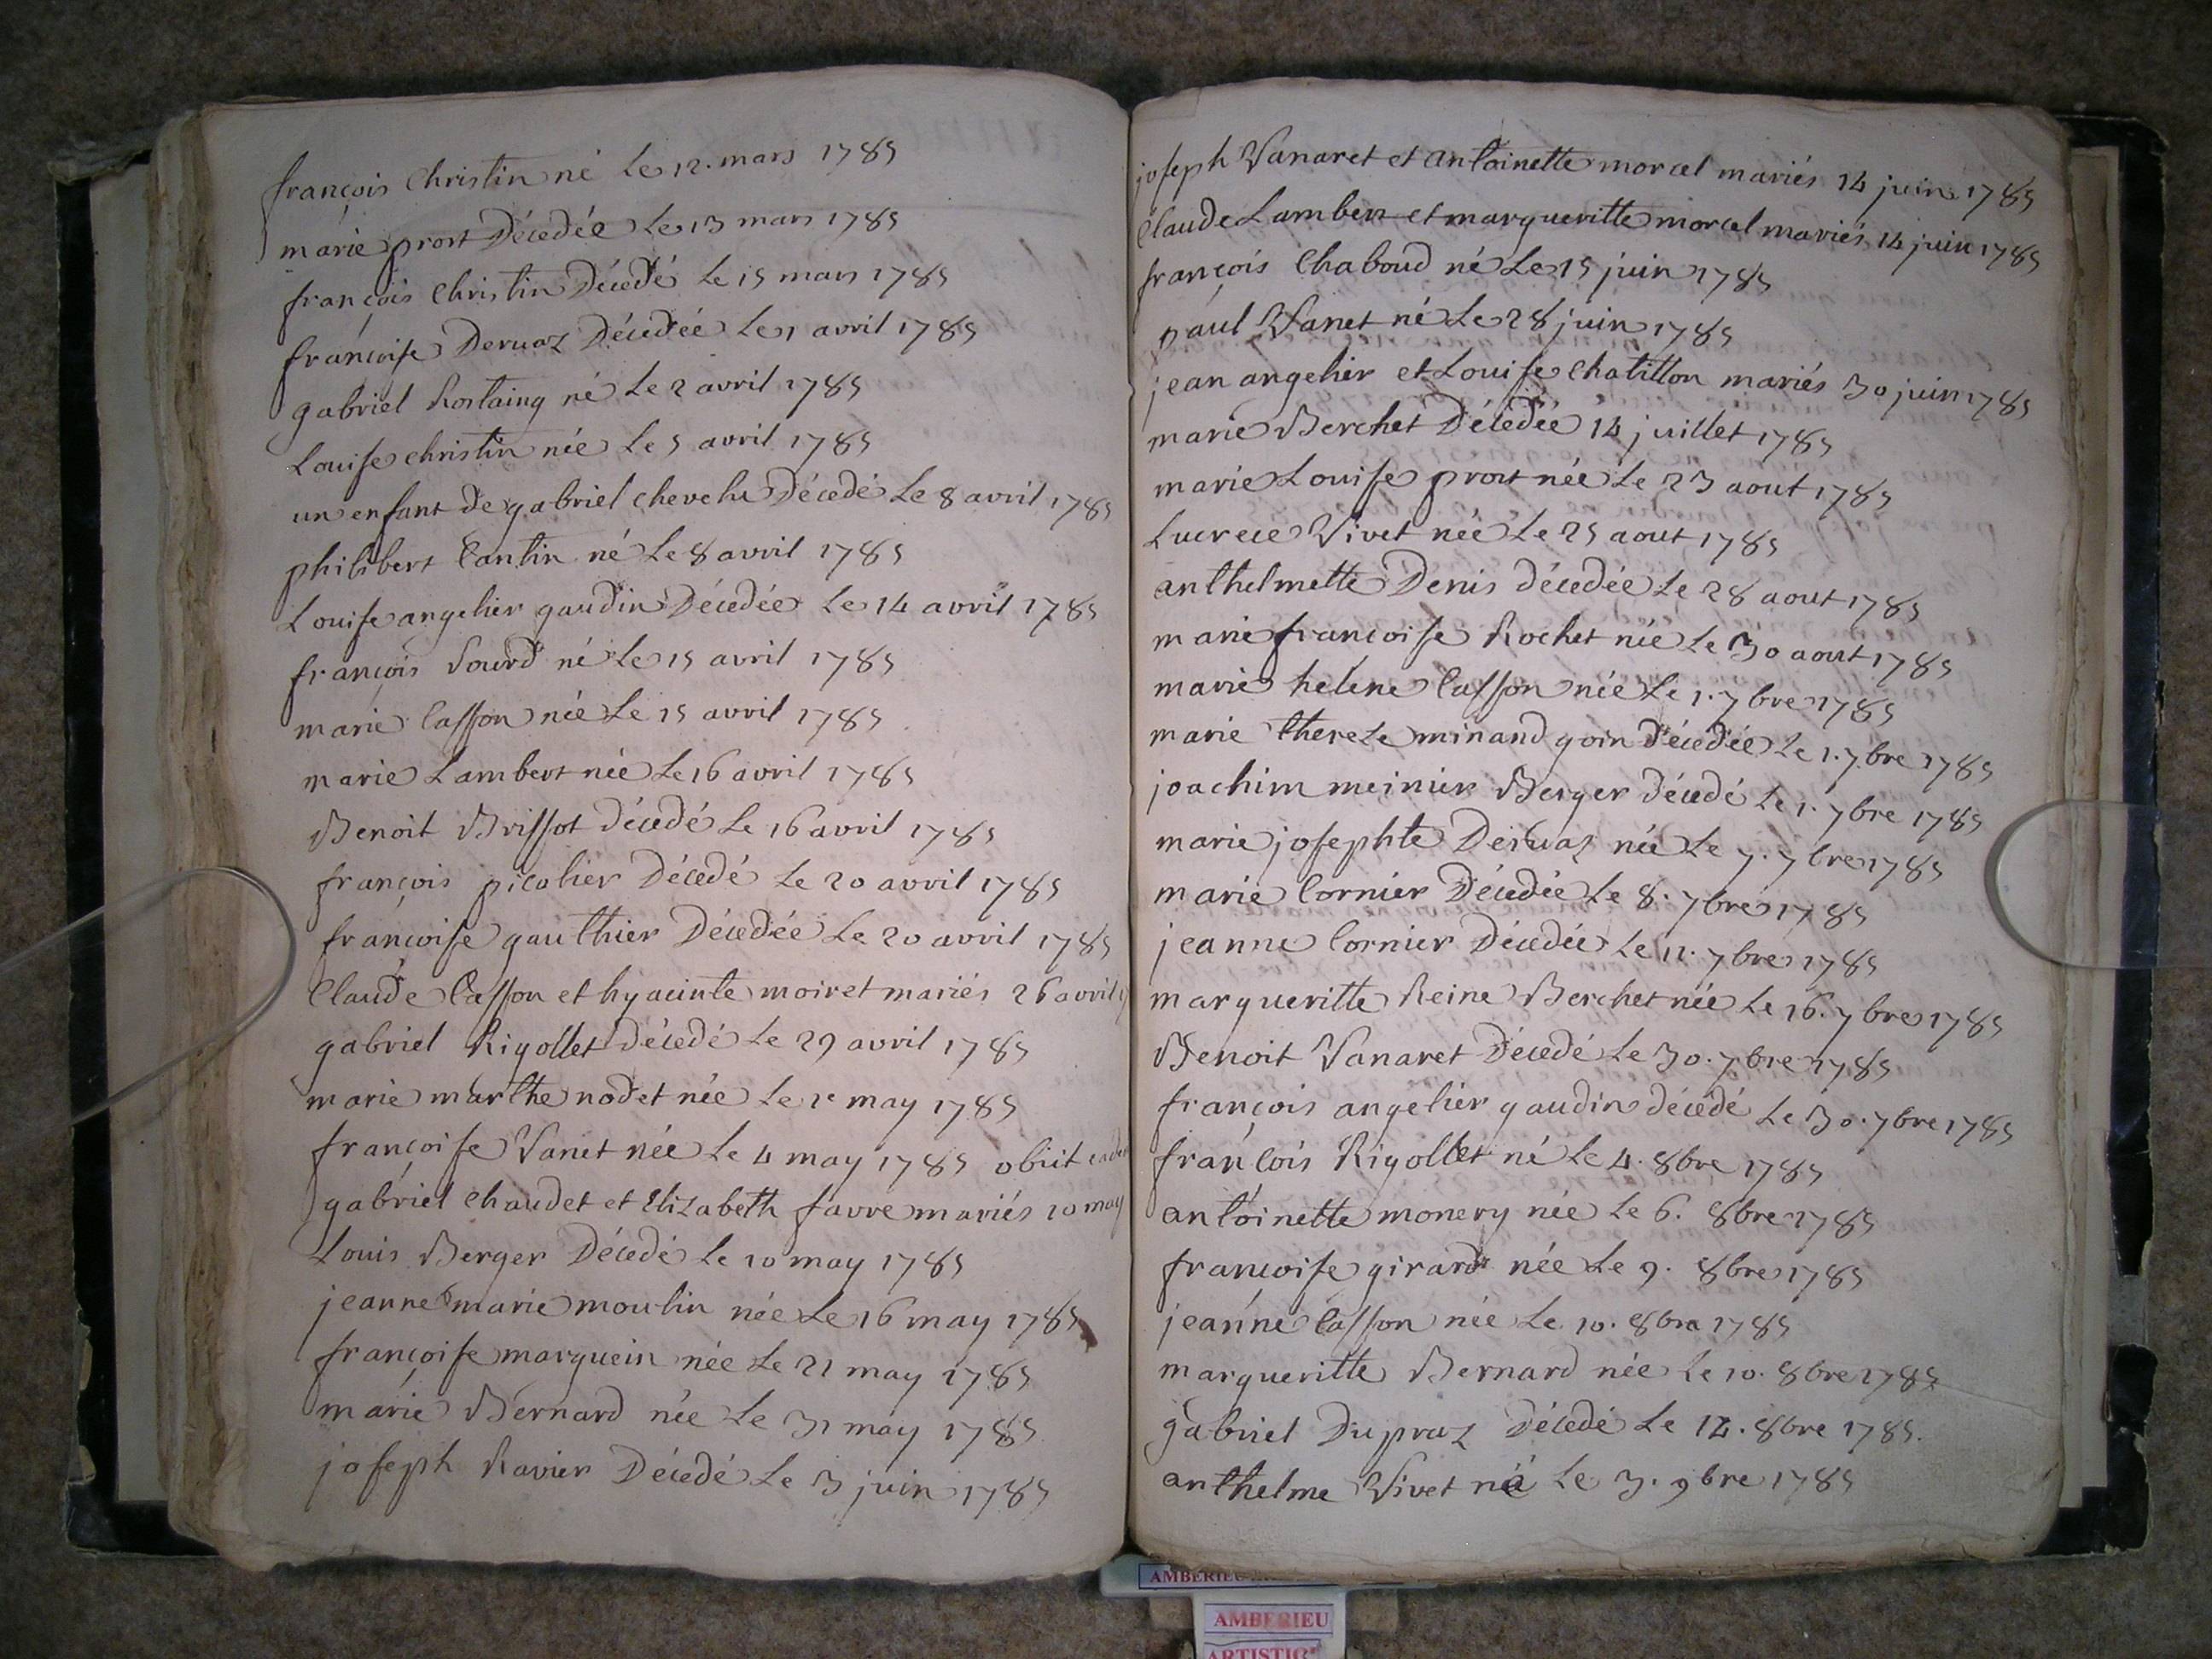 françois Christin né Le 12. mars 1785
marie prost Décedée Le 13 mars 1785
françois Christin Décedé Le 15 mars 1785
françoise Deruaz Décedée Le 1 avril 1785
gabriel Rostaing né Le 2 avril 1785
Louise christin née Le 5 avril 1785
un enfant de gabriel Décedé Le 8 avril 1785
philibert Cantin né Le 8 avril 1785
Louise angelier gaudin Décedée Le 14 avril 1785
françois Sourd né Le 15 avril 1785
marie Casson née Le 15 avril 1785
marie Lambert née Le 16 avril 1785
Benoit Brissot décedé Le 16 avril 1785
françois picolier Décedé Le 20 avril 1785
françoise gauthier Décedée Le 20 avril 1785
Claude Casson et hyacinte moiret mariés 26 avril
gabriel Rigollet décedé Le 29 avril 1785
marie marthe nodet née Le 1e may 1785
françoise Vanet née Le 4 may 1785 obiit
gabriel Chaudet et Elizabeth favre mariés 10 may
Louis Berger Décedé Le 10 may 1785
jeanne marie moulin née Le 16 may 1785
françoise marguein née Le 21 may 1785
marie Bernard née Le 31 may 1785
joseph Ravier Décedé Le 3 juin 1785
joseph Vanaret et antoinette morcel mariés 14 juin 1785
Claude Lambert et margueritte morcel mariés 14 juin 1785
françois Chaboud né Le 15 juin 1785
paul Vanet né Le 28 juin 1785
jean angelier et Louise Chatillon mariés 30 juin 1785
marie Berchet Décedée 14 juillet 1785
marie Louise prost née Le 23 aout 1785
Lucrece Vivet née Le 25 aout 1785
anthelmette Denis décedée Le 28 aout 1785
marie françoise Rochet née Le 30 aout 1785
marie helene Casson née Le 1. 7bre 1785
marie therese minand goin décedée Le 1. 7bre 1785
joachim meinier Berger décedé Le 1. 7bre 1785
marie josephte Deruaz née Le 7. 7bre 1785
marie Cornier Décedée Le 8. 7bre 1785
jeanne Cornier Décedée Le 11. 7bre 1785
margueritte Reine Berchet née Le 16. 7bre 1785
Benoit Vanaret Décedé Le 30. 7bre 1785
françois angelier gaudin décedé Le 30. 7bre 1785
françois Rigollet né Le 4. 8bre 1785
antoinette monery née Le 6. 8bre 1785
françoise girard née Le 9. 8bre 1785
jeanne Casson née Le 10. 8bre 1785
margueritte Bernard née Le 10. 8bre 1785
gabriel Dupraz Décedé Le 14. 8bre 1785.
anthelme Vivet né Le 3. 9bre 1785
AMBERIEU
AMBERIEU
ARTISTIQ